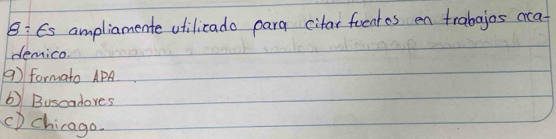 8: Es ampliamente utilizado para citar fuentes en trabajos aca-
démico.
a) formato APA.
b) Buscadores
c) Chicago.